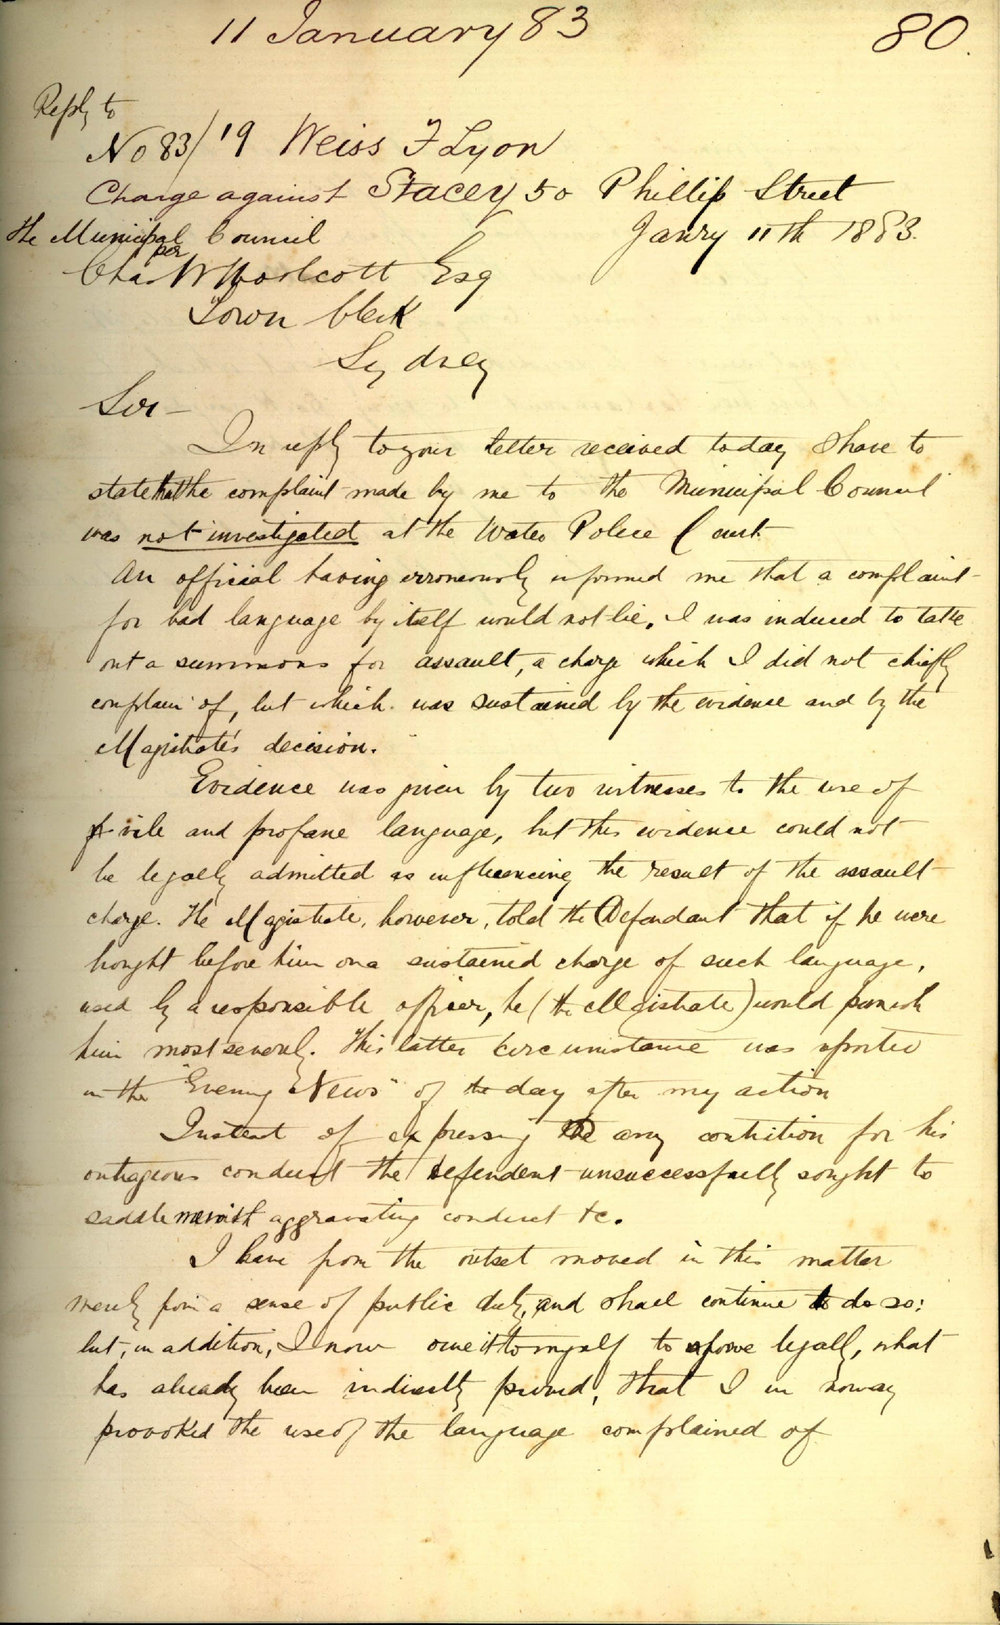 11 January 83
80.
Reply to
No 83/19 Weiss F Lyon
Charge against Stacey 50 Phillip Street
the Municipal Council Janry 11th 1883.
per
Chas H Woolcott Esq
Town Clerk
Sydney
Sir -
In reply to your letter received today I have to
state that the complaint made by me to the Municipal Council
was not investigated at the Water Police Court
An official having erroneously informed me that a complaint
for bad language by itself would not lie, I was induced to take
out a summons for assault, a charge which I did not chiefly
complain of, but which was sustained by the evidence and by the
Magistrate's decision.
Evidence was given by two witnesses to the use of
vile and profane language, but this evidence could not
be legally admitted as influencing the result of the assault
charge. The Magistrate, however, told the Defendant that if he were
brought before him on a sustained charge of such language,
used by a responsible officer, he (the Magistrate) would punish
him most severely. This latter circumstance was reported
in the "Evening News" of the day after my action
Instead of expressing any contrition for his
outrageous conduct the defendent unsuccessfully sought to
saddle me with aggravating conduct &c.
I have from the outset moved in this matter
merely from a sense of public duty, and shall continue to do so:
but, in addition, I now owe it to myself to prove legally, what
has already been indirectly proved, that I in noway
provoked the use of the language complained of